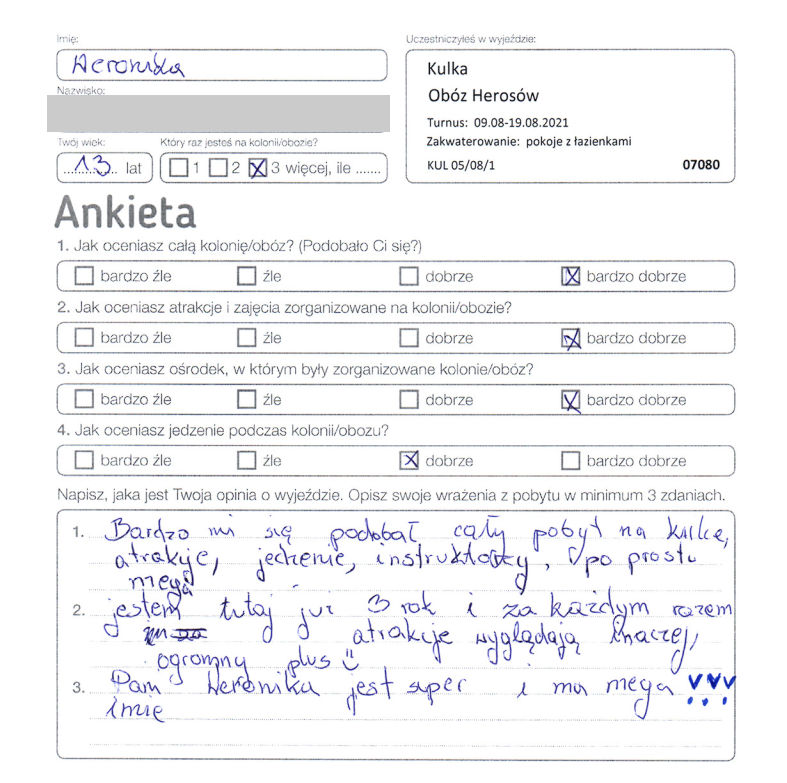 Imię:
Weronika
Nazwisko:
Twój wiek:
13 lat
Który raz jesteś na kolonii/obozie?
1 2 3 więcej, ile .......
Uczestniczyłeś w wyjeździe:
Kulka
Obóz Herosów
Turnus: 09.08-19.08.2021
Zakwaterowanie: pokoje z łazienkami
KUL 05/08/1 07080
Ankieta
1. Jak oceniasz całą kolonię/obóz? (Podobało Ci się?)
bardzo źle źle dobrze bardzo dobrze
2. Jak oceniasz atrakcje i zajęcia zorganizowane na kolonii/obozie?
bardzo źle źle dobrze bardzo dobrze
3. Jak oceniasz ośrodek, w którym były zorganizowane kolonie/obóz?
bardzo źle źle dobrze bardzo dobrze
4. Jak oceniasz jedzenie podczas kolonii/obozu?
bardzo źle źle dobrze bardzo dobrze
Napisz, jaka jest Twoja opinia o wyjeździe. Opisz swoje wrażenia z pobytu w minimum 3 zdaniach.
1. Bardzo mi się podobał cały pobyt na kulce,
atrakcje, jedzenie, instruktorzy, po prostu
mega
2. jestem tutaj już 3 rok i za każdym razem
atrakcje wyglądają inaczej,
ogromny plus
3. Pani Weronika jest super i ma mega !!!
imię